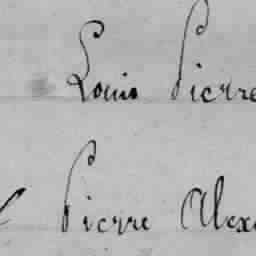 Louis Pierre
Pierre Alex